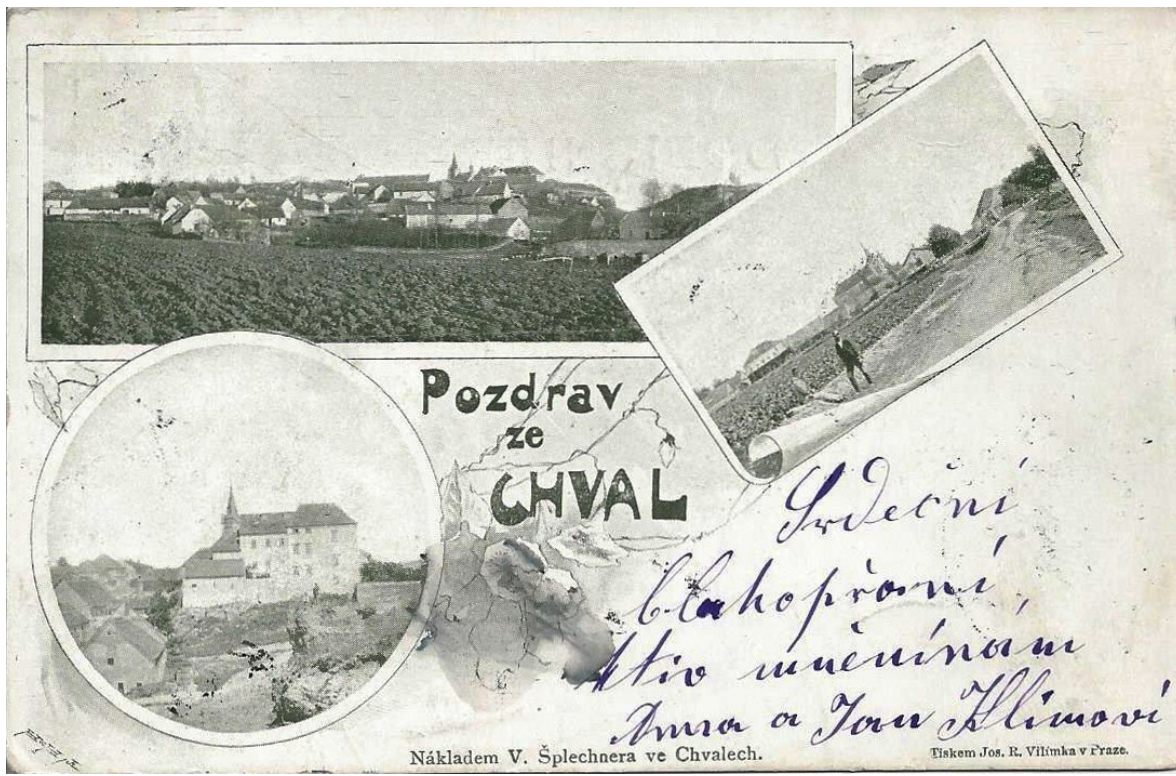 Pozdrav
ze
CHVAL
Srdeční
blahopřání,
Anna a Jan Klímovi
Nákladem V. Šplechnera ve Chvalech.
Tiskem Jos. R. Vilímka v Praze.